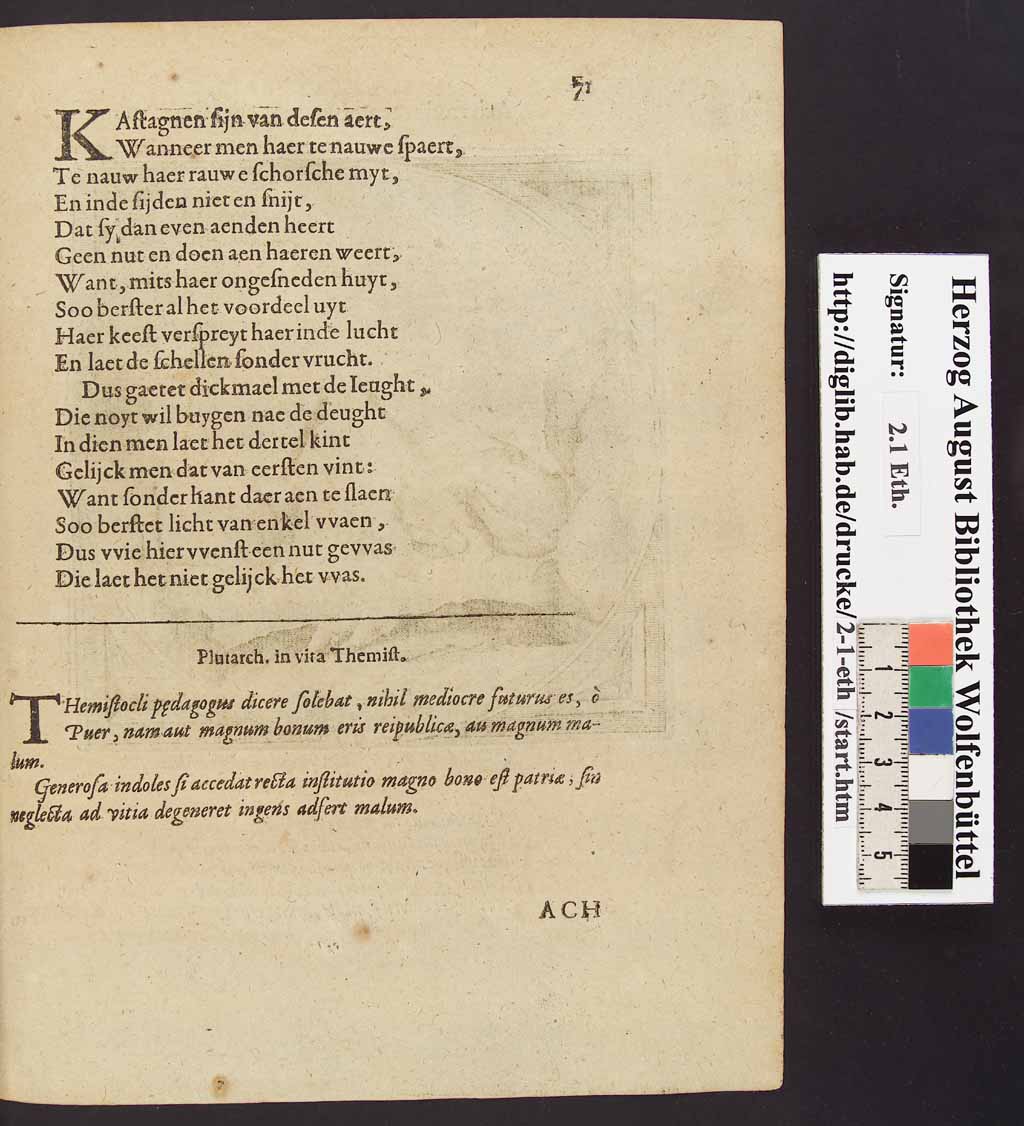 71
KAſtagnen ſijn van deſen aert,
Wanneer men haer te nauwe ſpaert,
Te nauw haer rauwe ſchorſche myt,
En inde ſijden niet en ſnijt,
Dat ſy dan even aenden heert
Geen nut en doen aen haeren weert,
Want, mits haer ongeſneden huyt,
Soo berſter al het voordeel uyt
Haer keeſt verſpreyt haer inde lucht
En laet de ſchellen ſonder vrucht.
Dus gaetet dickmael met de Ieught,
Die noyt wil buygen nae de deught
In dien men laet het dertel kint
Gelijck men dat van eerſten vint:
Want ſonder hant daer aen te ſlaen
Soo berſtet licht van enkel vvaen,
Dus vvie hier vvenſt een nut gevvas
Die laet het niet gelijck het vvas.
Plutarch. in vita Themiſt.
THemiſtocli pędagogus dicere ſolebat, nihil mediocre futurus es, ò
Puer, nam aut magnum bonum eris reipublicæ, au magnum ma-
lum.
Generoſa indoles ſi accedat recta inſtitutio magno bono eſt patriæ, ſin
neglecta ad vitia degeneret ingens adfert malum.
ACH
Herzog August Bibliothek Wolfenbüttel
Signatur: 2.1 Eth.
http://diglib.hab.de/drucke/2-1-eth /start.htm
1 2 3 4 5